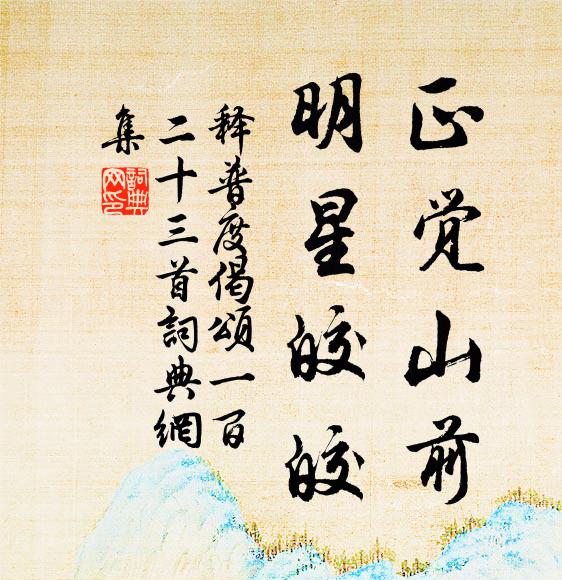 正觉山前
明星皎皎
释普度偈頌一百
二十三首詞典網
集
詞典
网印